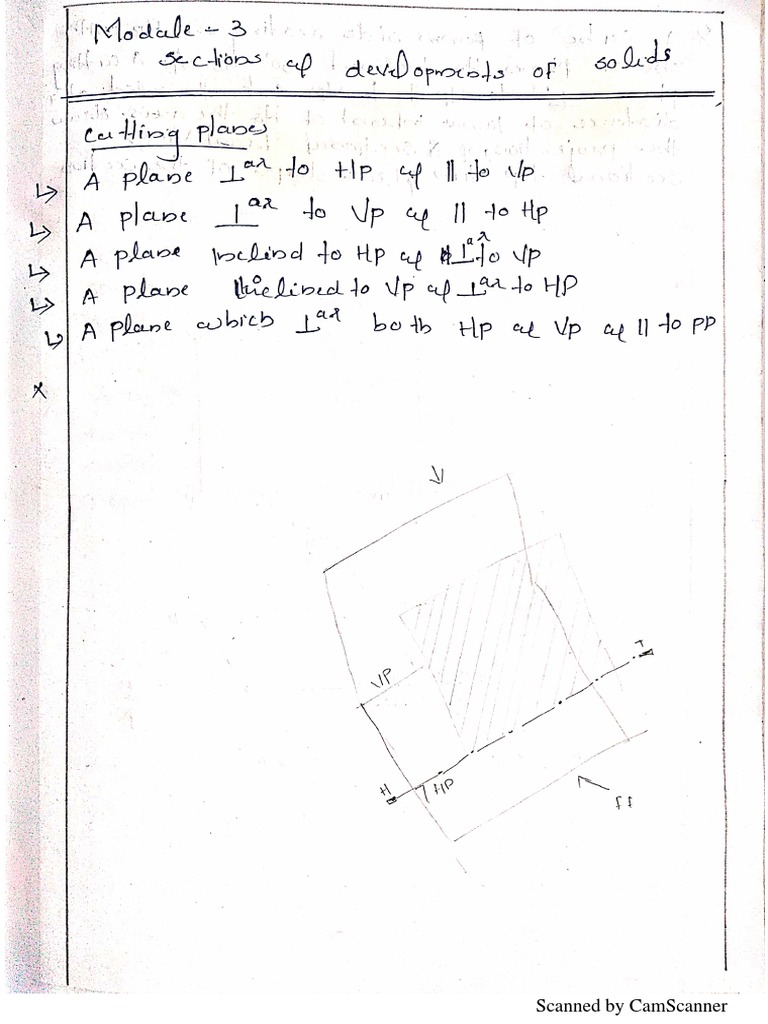 Module - 3
sections & developments of solids
Cutting planes
↳ A plane ⊥ar to HP & || to VP
↳ A plane ⊥ar to VP & || to HP
↳ A plane Inclind to HP & ⊥ar to VP
↳ A plane Inclined to VP & ⊥ar to HP
↳ A plane which ⊥ar both HP & VP & || to PP
x
VP
T
H
HP
Scanned by CamScanner